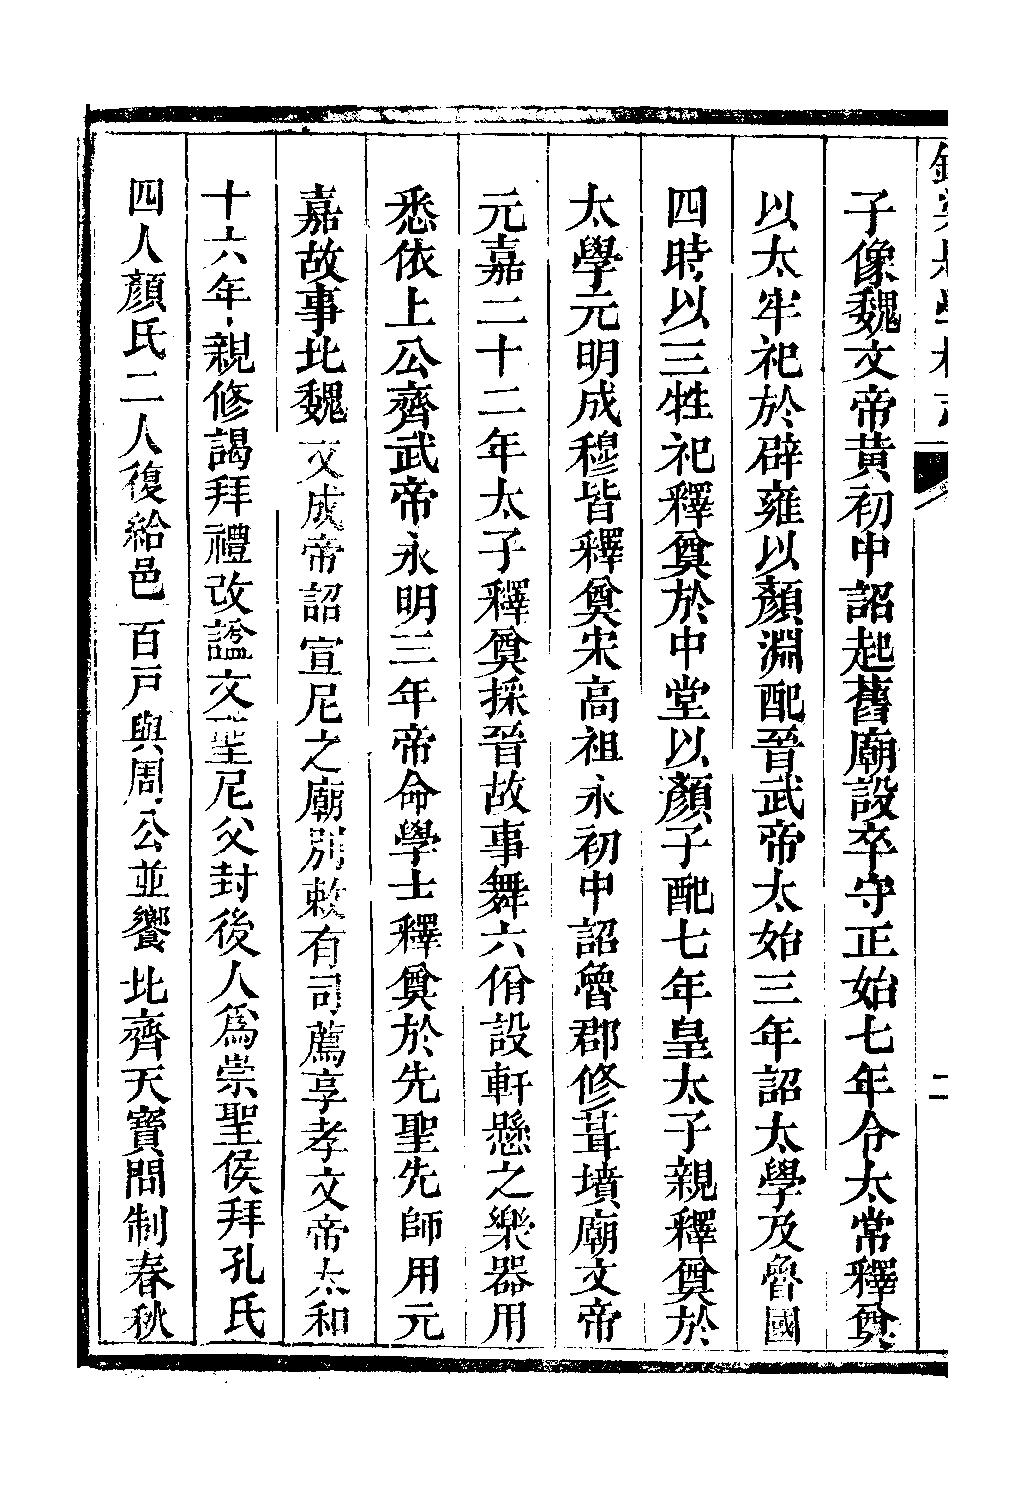 子像魏文帝黃初中詔起舊廟設卒守正始七年令太常釋奠
以太牢祀於辟雍以顏淵配晉武帝太始三年詔太學及魯國
四時以三牲祀釋奠於中堂以顏子配七年皇太子親釋奠於
太學元明成穆皆釋奠宋高祖永初中詔魯郡修葺墳廟文帝
元嘉二十二年太子釋奠採晉故事舞六佾設軒懸之樂器用
悉依上公齊武帝永明三年帝命學士釋奠於先聖先師用元
嘉故事北魏文成帝詔宣尼之廟別敕有司薦享孝文帝太和
十六年親修謁拜禮改諡文聖尼父封後人爲崇聖侯拜孔氏
四人顏氏二人復給邑一百戸與周公並饗北齊天寶間制春秋
二